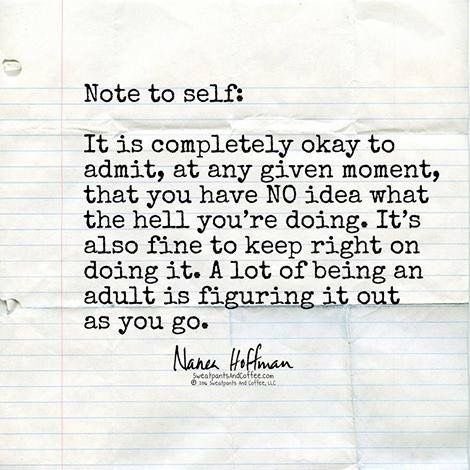 Note to self:
It is completely okay to
admit, at any given moment,
that you have NO idea what
the hell you're doing. It's
also fine to keep right on
doing it. A lot of being an
adult is figuring it out
as you go.
Nanea Hoffman
SweatpantsAndCoffee.com
© 2016 Sweatpants And Coffee, LLC